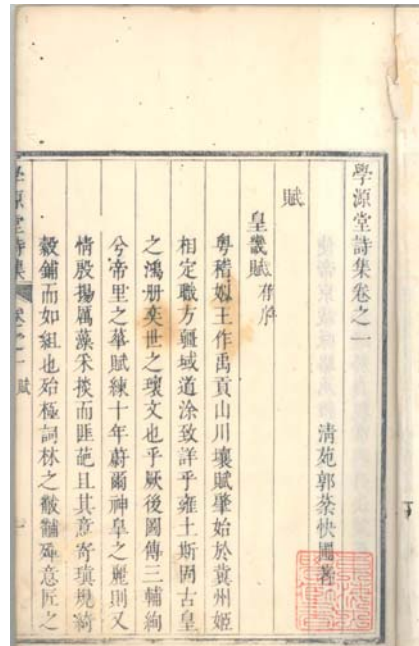 學源堂詩集卷之一
清苑郭棻快圃著
賦
皇畿賦有序
粵稽姒王作禹貢山川壤賦肇始於冀州姬
相定職方疆域道涂致詳乎雍土斯固古皇
之鴻册奕世之瓌文也乎厥後圖傳三輔絢
兮帝里之華賦練十年蔚爾神皋之麗則又
情殷揚厲藻采掞而匪葩且其意寄瑱規綺
縠鋪而如組也殆極詞林之黻黼殫意匠之
學源堂詩集 卷之一 賦